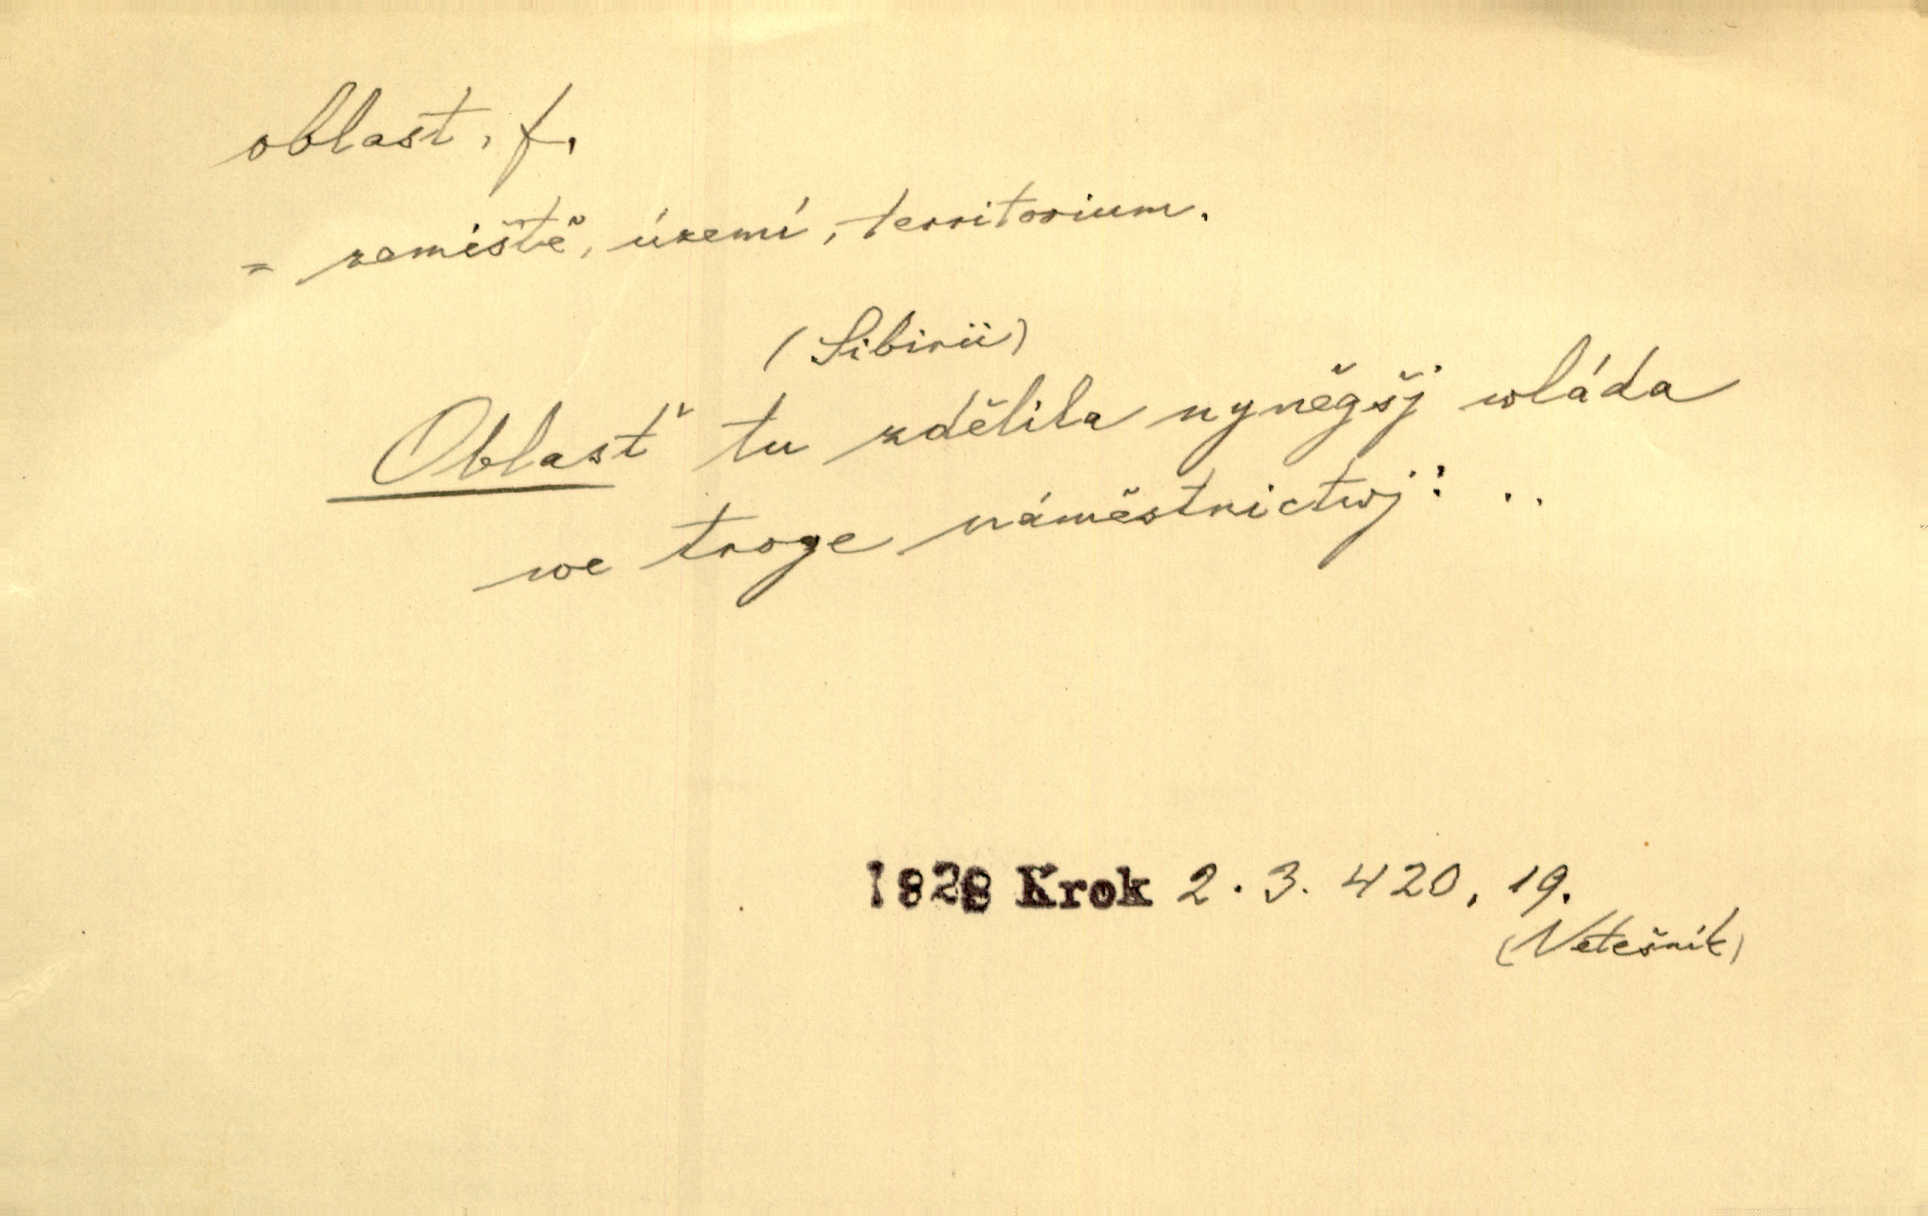 oblast, f.
= zemiště, území, territorium.
(Sibirii)
Oblasť tu zdělila nyněgšj wláda
we troge náměstnictwj: ..
1828 Krok 2. 3. 420, 19.
(Netešník)